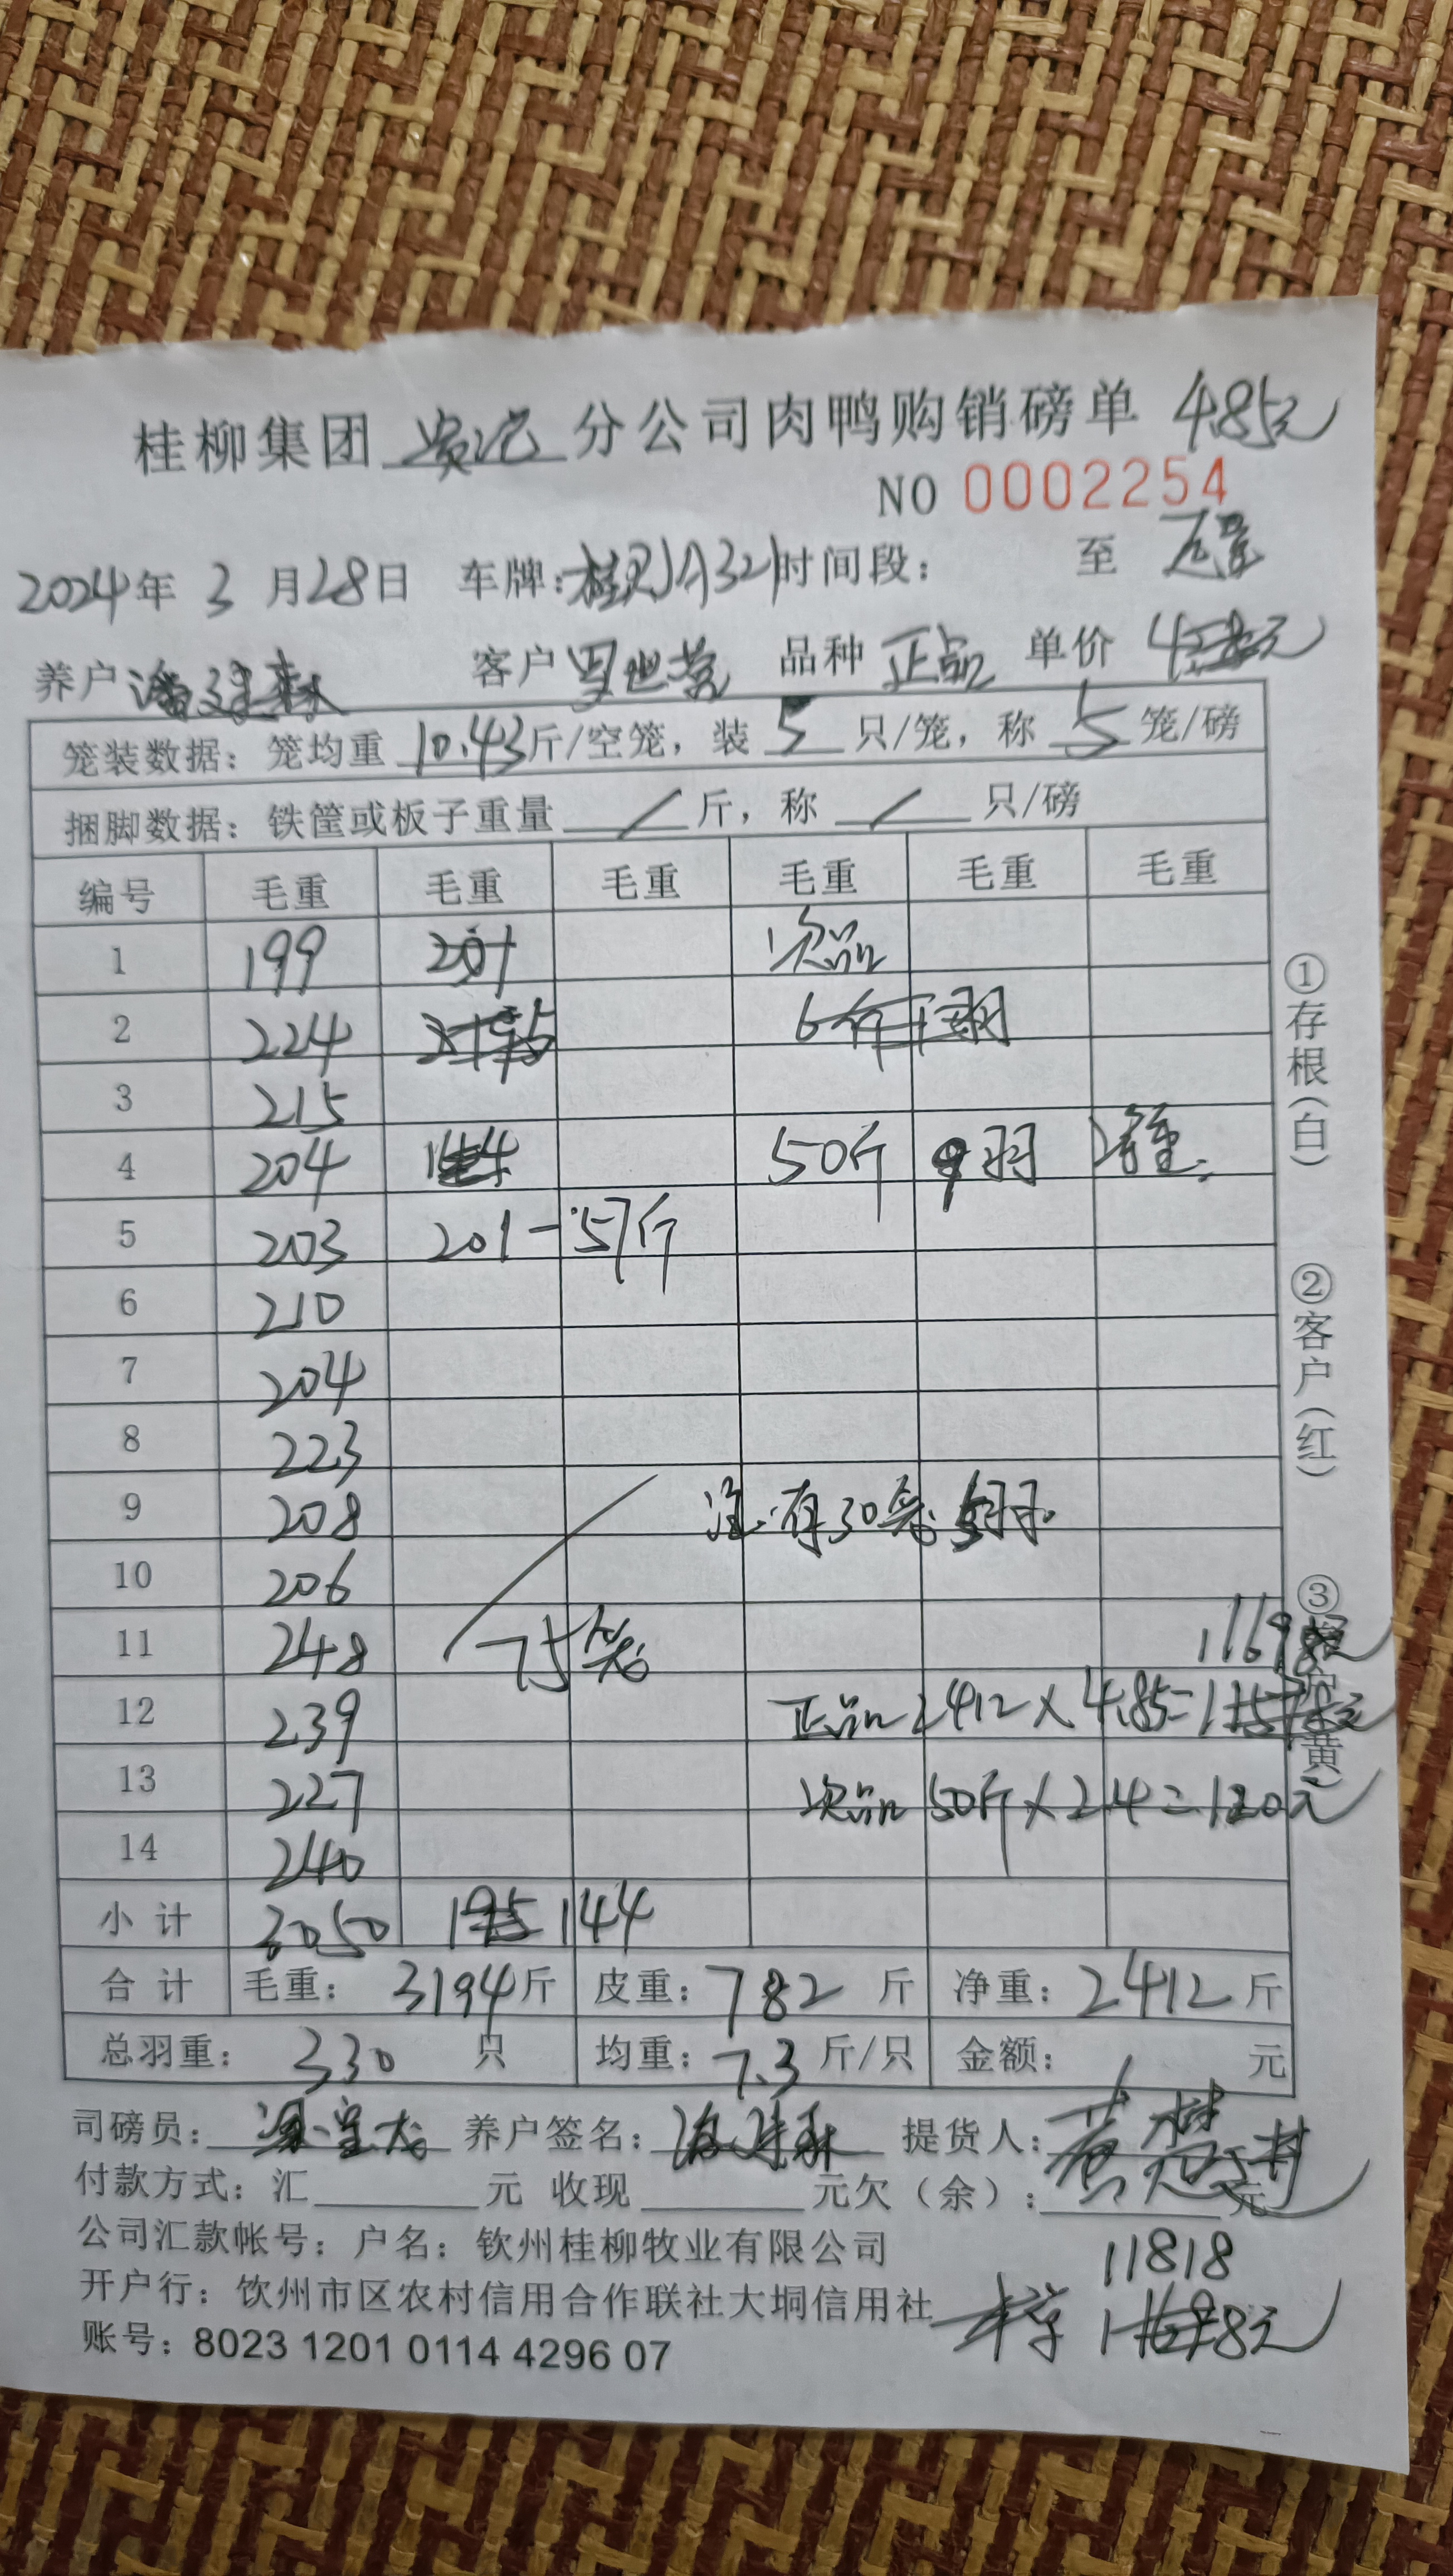 桂柳集团 分公司肉鸭购销磅单 4.85元
NO 0002254
2024年 3 月28日 车牌: 时间段: 至
养户 客户 品种 正品 单价
笼装数据: 笼均重 10.43斤/空笼, 装 5 只/笼, 称 5 笼/磅
捆脚数据: 铁筐或板子重量 / 斤, 称 / 只/磅
编号 毛重 毛重 毛重 毛重 毛重 毛重
1 199 201 次品
2 224
3 215
4 204 50斤 9羽
5 203 201-57斤
6 210
7 204
8 223
9 208 注:有30笼
10 206
11 248 75笼
12 239 正品 2412×4.85=
13 227 次品 50斤×2.4=120元
14 240
小 计 3050 144
合 计 毛重: 3194斤 皮重: 782 斤 净重: 2412 斤
总羽重: 330 只 均重: 7.3 斤/只 金额: 元
司磅员: 养户签名: 提货人:
付款方式: 汇 元 收现 元欠(余): 元
公司汇款帐号: 户名: 钦州桂柳牧业有限公司
11818
开户行: 钦州市区农村信用合作联社大垌信用社
账号: 8023 1201 0114 4296 07
①存根(白)
②客户(红)
③ 黄)